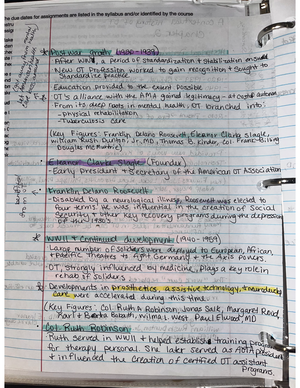 the due dates for assignments are listed in the syllabus and/or identified by the course
Postwar Growth (1920-1939)
After WWI, a period of standardization & stabilization ensued
New OT Profession worked to gain recognition & sought to
standardize practice
Education provided to the extent possible
OT's alliance with the AMA gained legitimacy
From its deep roots in mental health OT branched into:
-physical rehabilitation
-Tuberculosis care
(Key Figures: Franklin Delano Roosevelt, Eleanor Clarke Slagle,
William Rush Dunton, Jr. MD, Thomas B. Kidner,
Douglas McMurtrie)
Eleanor Clarke Slagle (Founder)
Early President & secretary of the American OT Association
Franklin Delano Roosevelt
-Disabled by a neurological illness, Roosevelt was elected to
four terms. He was influential in the creation of Social
Securities & other key recovery programs during the depression
of the 1930's
WWII & Continued development (1940-1959)
Large number of soldiers were deployed to European, African
& Pacific Theatres to fight Germany & the Axis Powers.
OT, strongly influenced by medicine, plays a key role in
rehab of soldiers
Developments in prosthetics, assistive technology,
care were accelerated during this time.
(Key Figures: Col. Ruth A Robinson, Jonas Salk, Margaret Rood,
Karl & Berta Bobath, Wilma L. West, Paul Ellwood MD
Col Ruth Robinson
Ruth Served in WWII & helped establish training programs
for therapy personal. She later served as AOTA president
& influenced the creation of certified OT assistant
Programs.